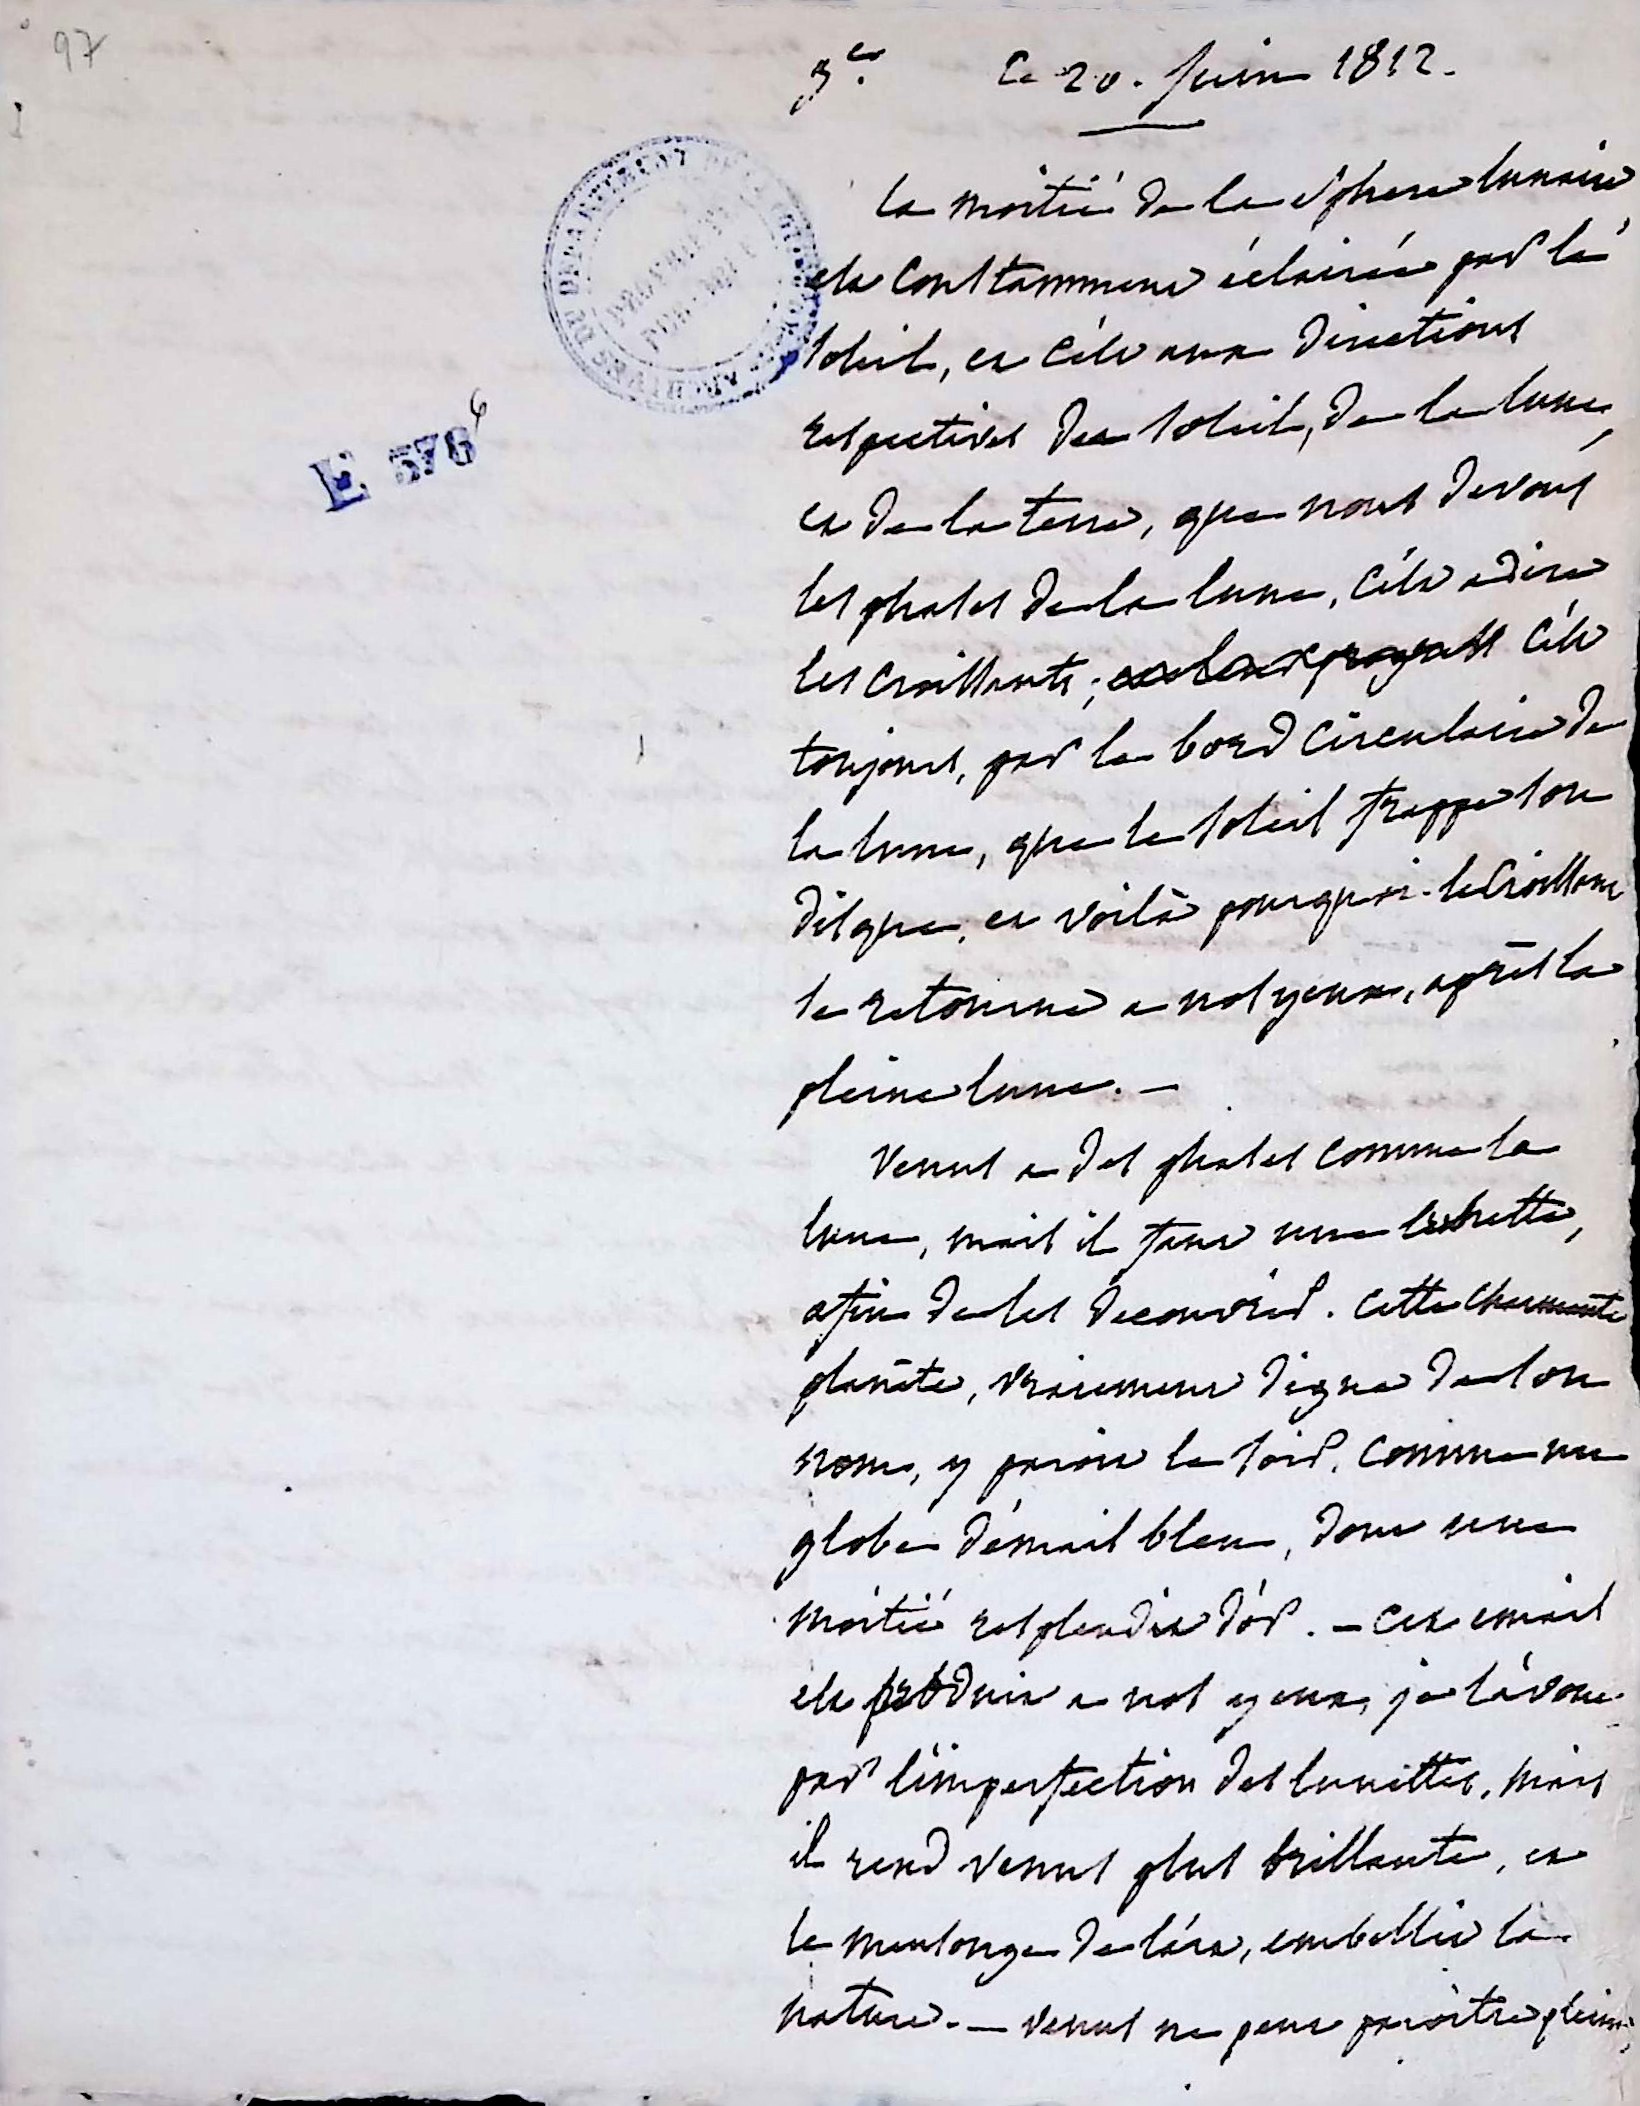 97
3.er Ce 20. Juin 1812.
la moitié de la Sphere lunaire
est constamment éclairée par le
soleil, et c'est aux directions
respectives du soleil, de la lune,
et de la terre, que nous devons
les phases de la lune, c'est a dire
les croissants; c'est
toujours, par le bord circulaire de
la lune, que le soleil frappe son
disque, et voilà pourquoi le Croissant
se retourne a nos yeux, après la
pleine lune. —
E 576 6
Venus a des phases comme la
lune, mais il faut une lunette,
afin de les decouvrir. cette charmante
planète, vraiement digne de son
nom, y paroit le soir, comme un
globe d'émail bleu, dont une
moitié resplendit d'or. — cet email
est produit a nos yeux, je l'avoue
par l'imperfection des lunettes, mais
il rend venus plus brillante, et
le mensonge de l'art, embellit la
nature. — venus ne peut paroitre pleine,